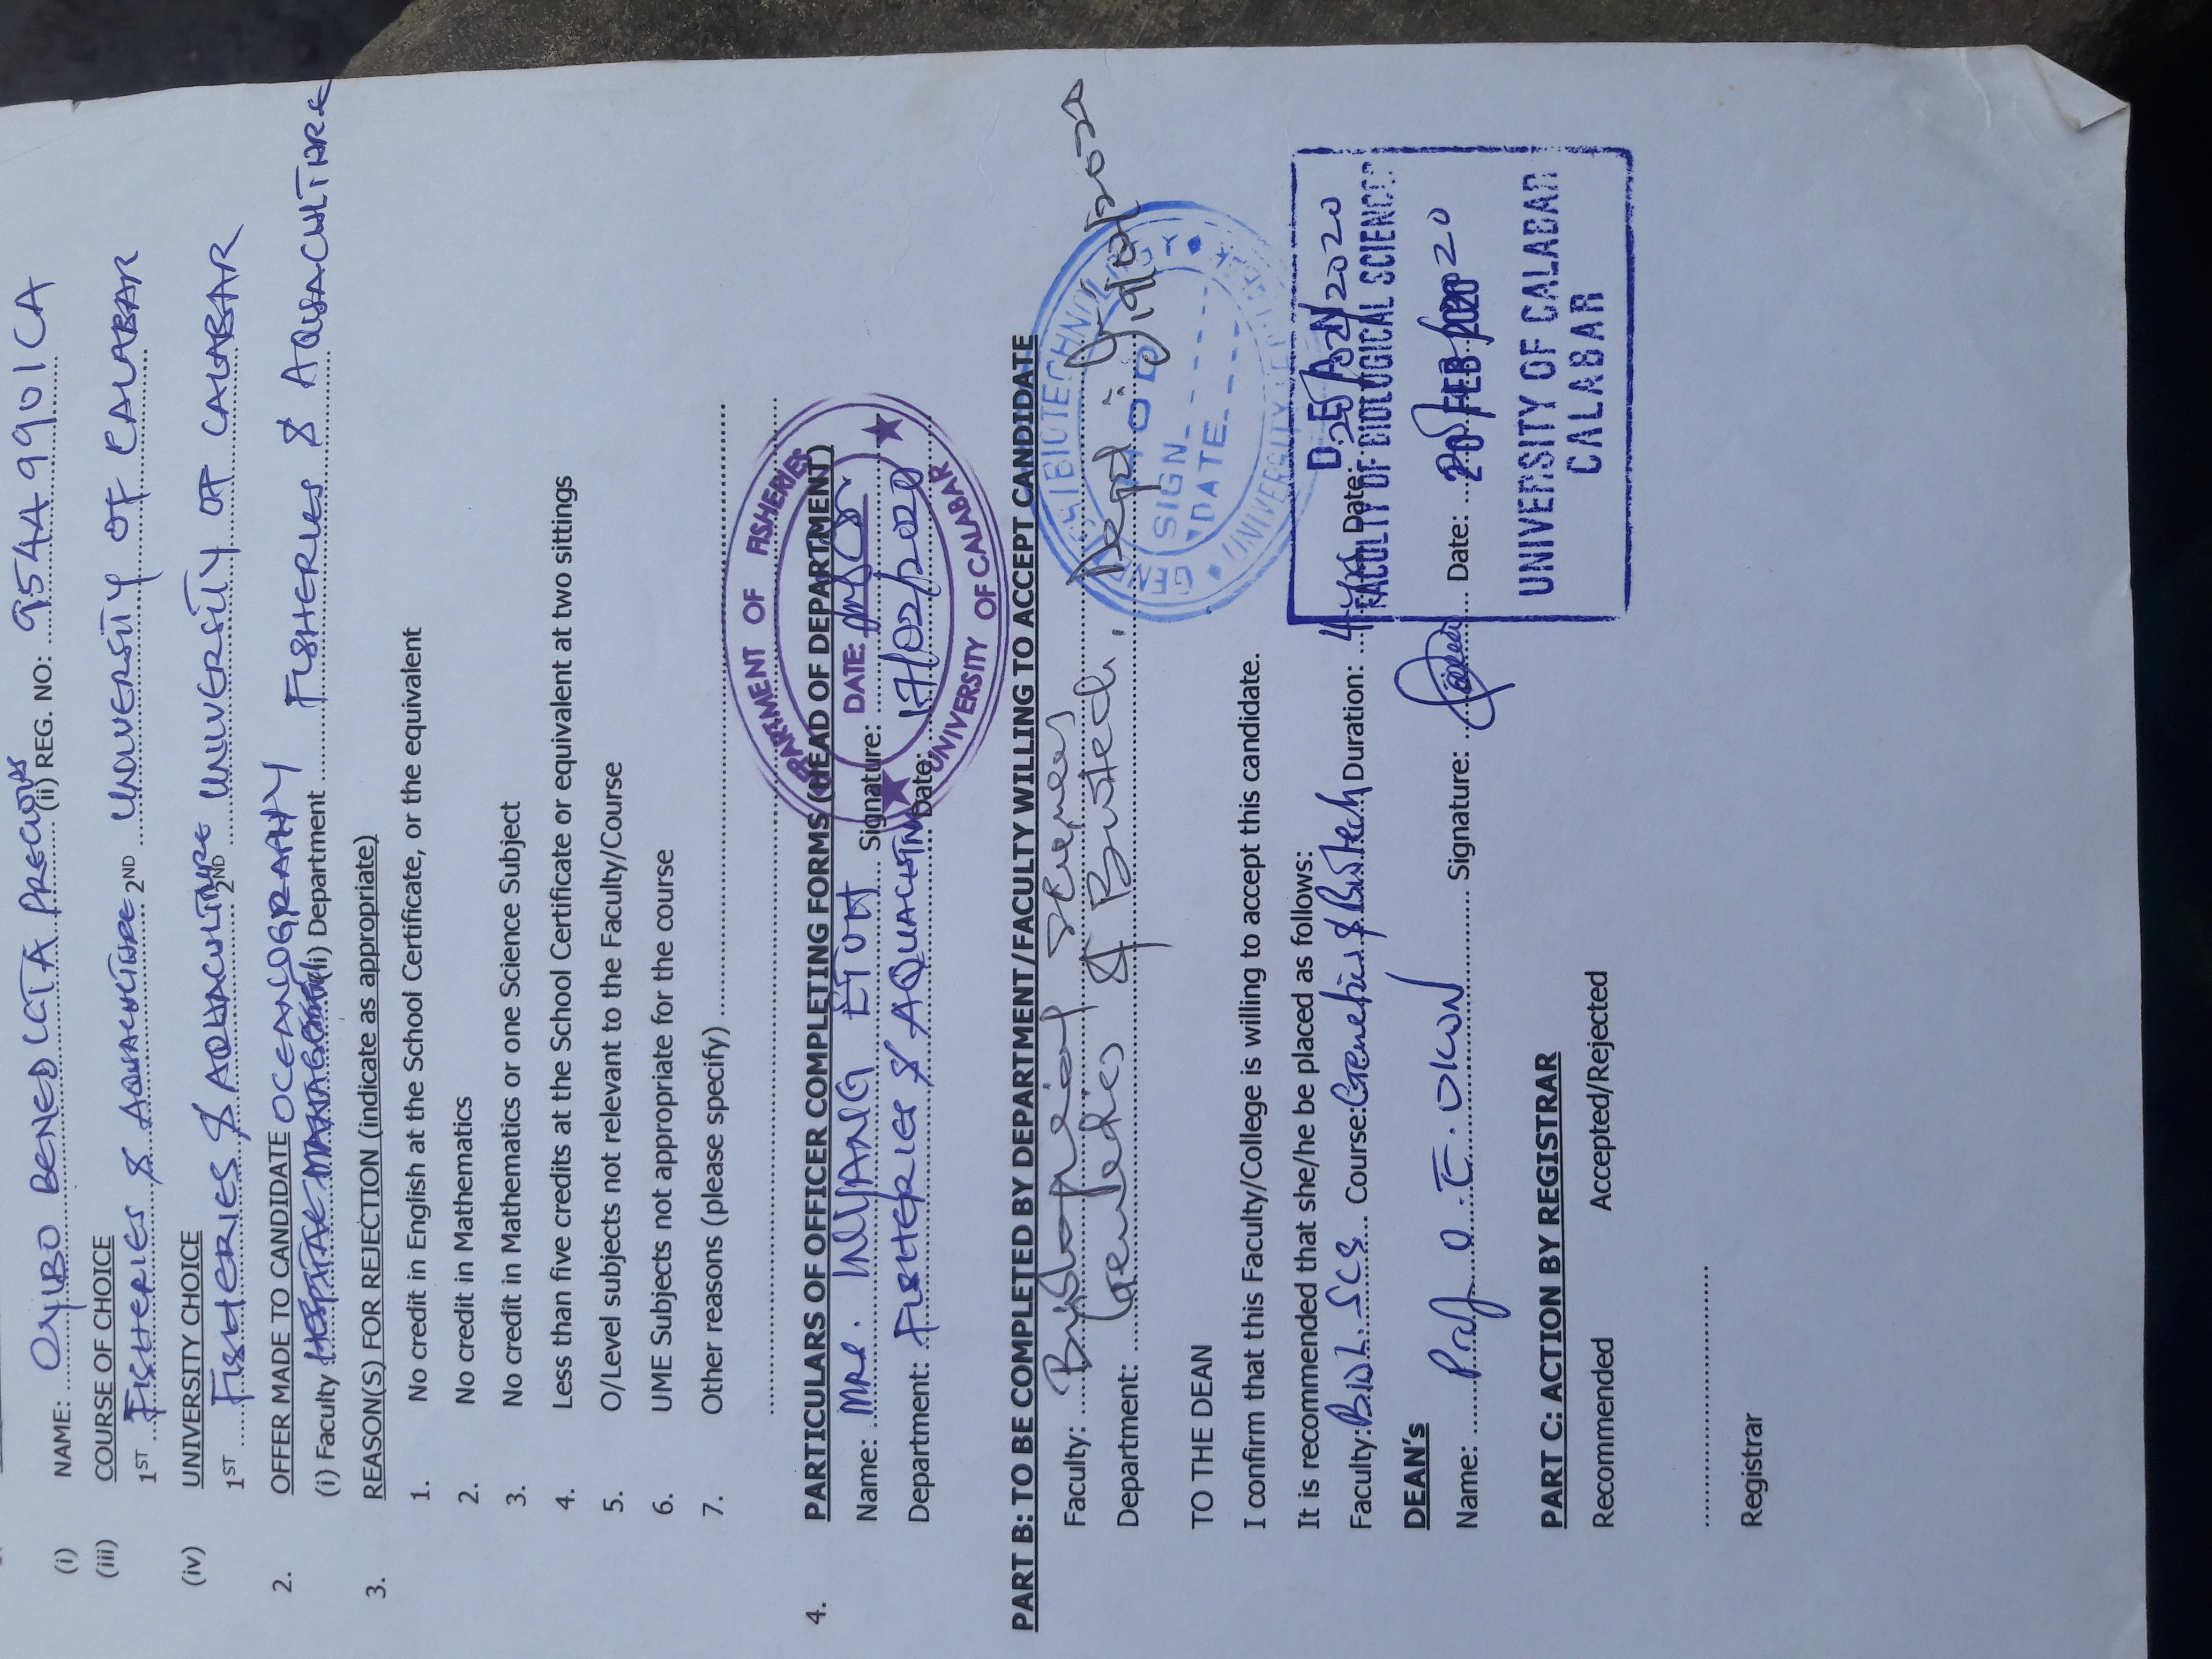 (i) NAME: OYIBO BENEDICTA PRECIOUS (ii) REG. NO: 95449901CA
(iii) COURSE OF CHOICE
1ST FISHERIES & AQUACULTURE 2ND UNIVERSITY OF CALABAR
(iv) UNIVERSITY CHOICE
1ST FISHERIES & AQUACULTURE 2ND UNIVERSITY OF CALABAR
2. OFFER MADE TO CANDIDATE OCEANOGRAPHY
(i) Faculty (ii) Department FISHERIES & AQUACULTURE
3. REASON(S) FOR REJECTION (indicate as appropriate)
1. No credit in English at the School Certificate, or the equivalent
2. No credit in Mathematics
3. No credit in Mathematics or one Science Subject
4. Less than five credits at the School Certificate or equivalent at two sittings
5. O/Level subjects not relevant to the Faculty/Course
6. UME Subjects not appropriate for the course
7. Other reasons (please specify)
DEPARTMENT OF FISHERIES
4. PARTICULARS OF OFFICER COMPLETING FORMS (HEAD OF DEPARTMENT)
Name: MRS. INYANG ETUH Signature: DATE:
Department: FISHERIES & Date: 17/02/2020
UNIVERSITY OF CALABAR
PART B: TO BE COMPLETED BY DEPARTMENT/FACULTY WILLING TO ACCEPT CANDIDATE
Faculty: Biological Sciences
Department: Genetics & Biotech. Dept 19/02/2020
HOD
SIGN
DATE
TO THE DEAN
I confirm that this Faculty/College is willing to accept this candidate.
It is recommended that she/he be placed as follows:
DEAN
Faculty: BIOL. SCS Course: Genetics & Biotech Duration: 4 yrs Date: 20/02/2020
FACULTY OF BIOLOGICAL SCIENCES
DEAN's
Name: Prof O. E. OKON Signature: Date:
20 FEB 2020
UNIVERSITY OF CALABAR
CALABAR
PART C: ACTION BY REGISTRAR
Recommended Accepted/Rejected
Registrar